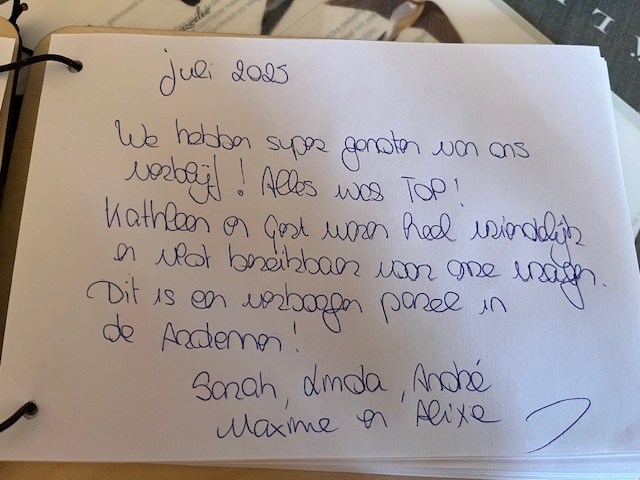 juli 2025
We hebben super genoten van ons
verblijf! Alles was TOP!
Kathleen en Gert waren heel vriendelijk
en vlot bereikbaar voor onze vragen.
Dit is een verborgen parel in
de Ardennen!
Sarah, Linda, André
Maxime en Alixe